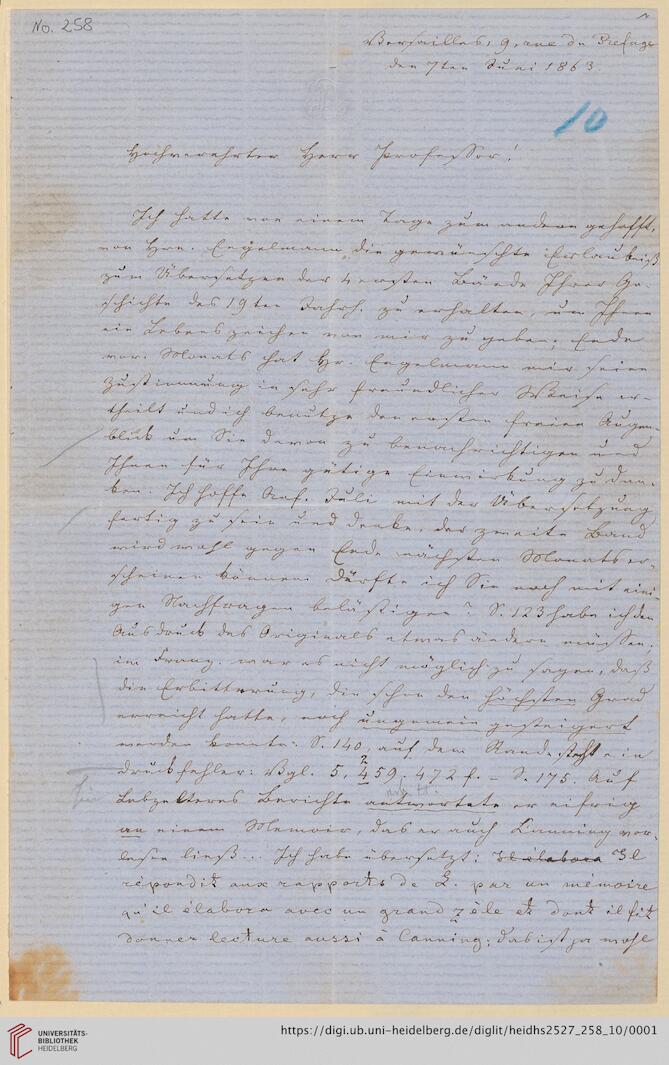 No. 258
Versailles, 9, rue du Prélage
den 7ten Juni 1863.
10
Hochverehrter Herr Professor!
Ich hatte von einem Tage zum andern gehofft,
von Hrn. Engelmann die gewünschte Erlaubniß
zum Übersetzen der 4 ersten Bände Ihrer Ge-
schichte des 19ten Jahrh. zu erhalten, um Ihnen
ein Lebenszeichen von mir zu geben; Ende
vor. Monats hat Hr. Engelmann mir seine
Zustimmung in sehr freundlicher Weise er-
theilt und ich benutze den ersten freien Augen-
blick um Sie davon zu benachrichtigen und
Ihnen für Ihre gütige Einwirkung zu dan-
ken. Ich hoffe Anf. Juli mit der Übersetzung
fertig zu sein und denke, der zweite Band
wird wohl gegen Ende nächsten Monats er-
scheinen können. Dürfte ich Sie noch mit eini-
gen Nachfragen belästigen? S. 123 habe ich den
Ausdruck des Originals etwas ändern müssen;
im Franz. war es nicht möglich zu sagen, daß
die Erbitterung, die schon den höchsten Grad
erreicht hatte, noch ungemein gesteigert
werden konnte. S. 140, auf dem Rande steht ein
Druckfehler: Vgl. 5, 459. 472 f. – S. 175. Auf
2
Lebzelterns Berichte antwortete er eifrig
an einem Memoir, das er auch Canning vor-
lesen ließ... Ich habe übersetzt: Il élabora Il
répondit aux rapports de L. par un mémoire
qu'il élabora avec un grand zèle et dont il fit
donner lecture aussi à Canning; das ist ja wohl
UNIVERSITÄTS-
BIBLIOTHEK
HEIDELBERG
https://digi.ub.uni-heidelberg.de/diglit/heidhs2527_258_10/0001